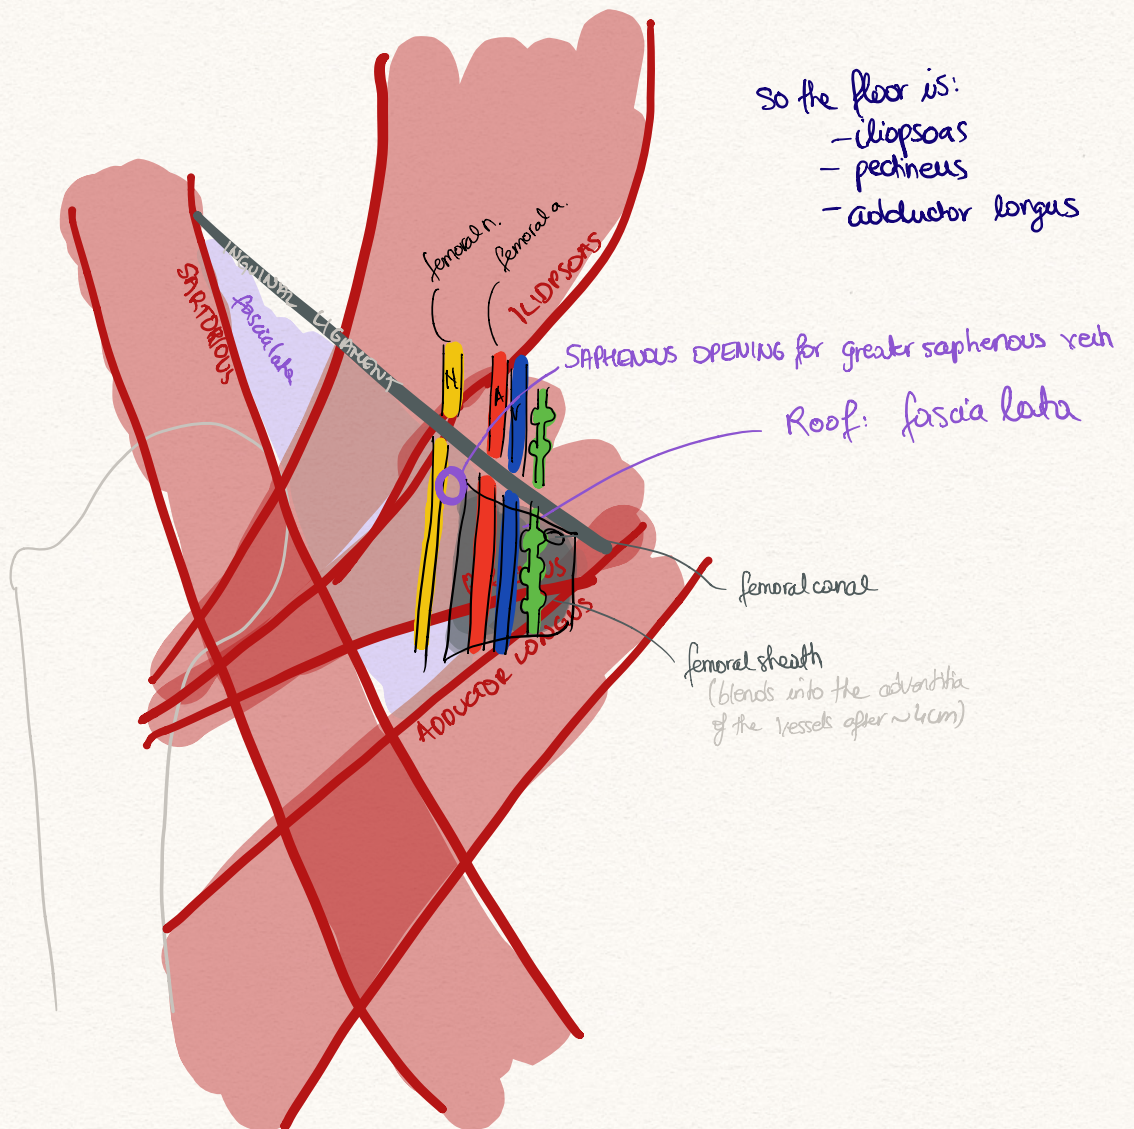 So the floor is:
- iliopsoas
- pectineus
- adductor longus
femoral n.
femoral a.
ILIOPSOAS
INGUINAL LIGAMENT
SARTORIOUS
fascia lata
N
A
V
SAPHENOUS OPENING for greater saphenous vein
Roof: fascia lata
femoral canal
femoral sheath
(blends into the adventitia
of the vessels after ~4cm)
ADDUCTOR LONGUS